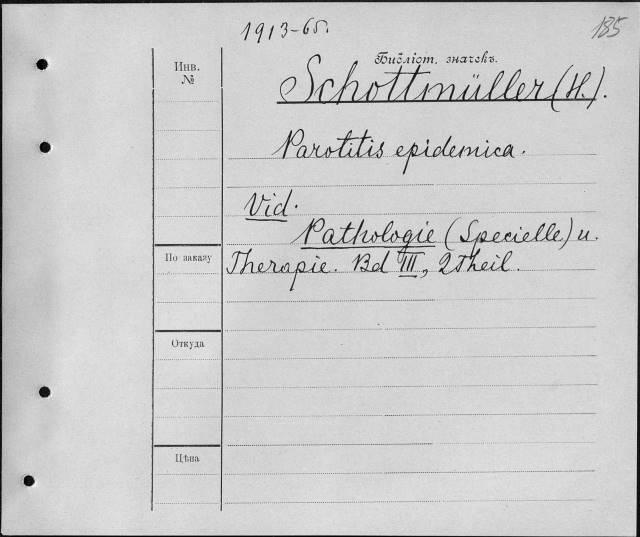 1913-65.
185
Библіот. значекъ.
Инв.
№
Schottmüller (H.).
Parotitis epidemica.
Vid.
Pathologie (Specielle) u.
По заказу
Therapie. Bd III, 2 Theil.
Откуда
Цѣна